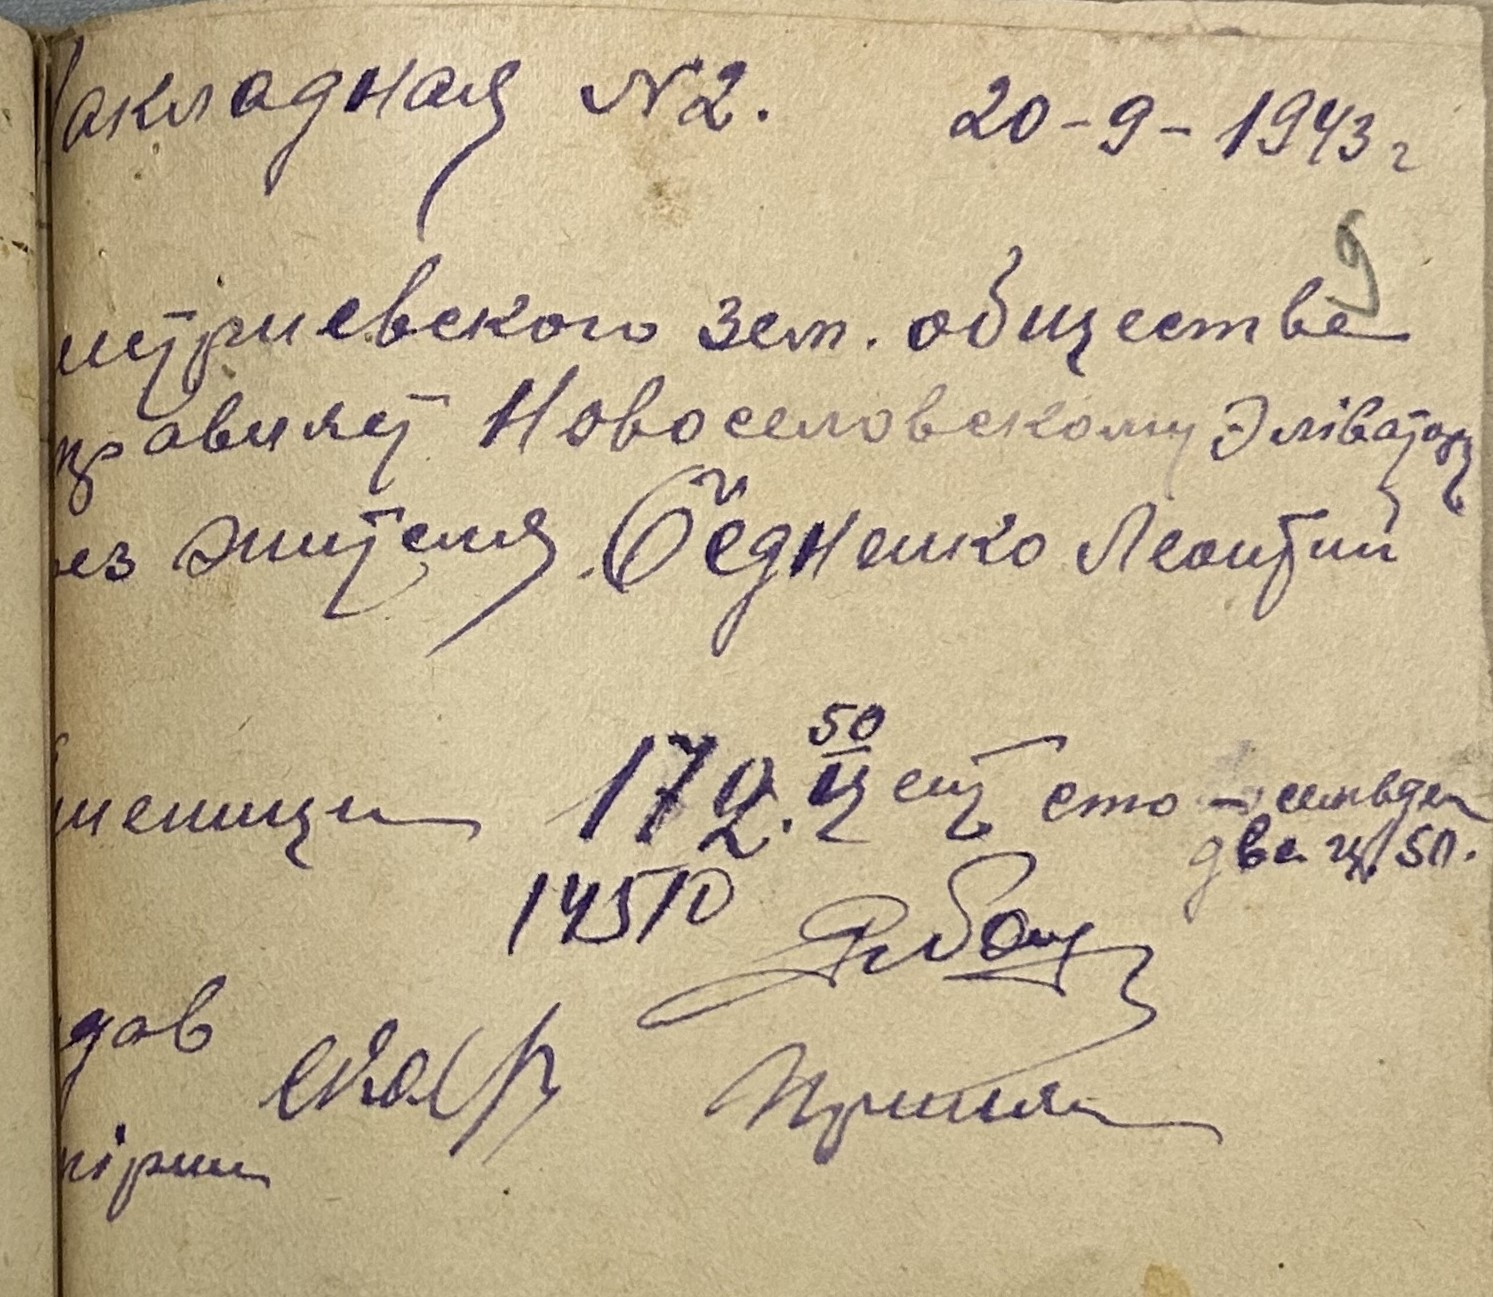 акладная №2. 20-9-1943 г
9
зем. общества
правляет Новоселовскому Эліватору
рез жителя Бедненко Леонтий
шеницы 172. 50 цент сто - семьдес
две ц/50.
14510
дав
Принял